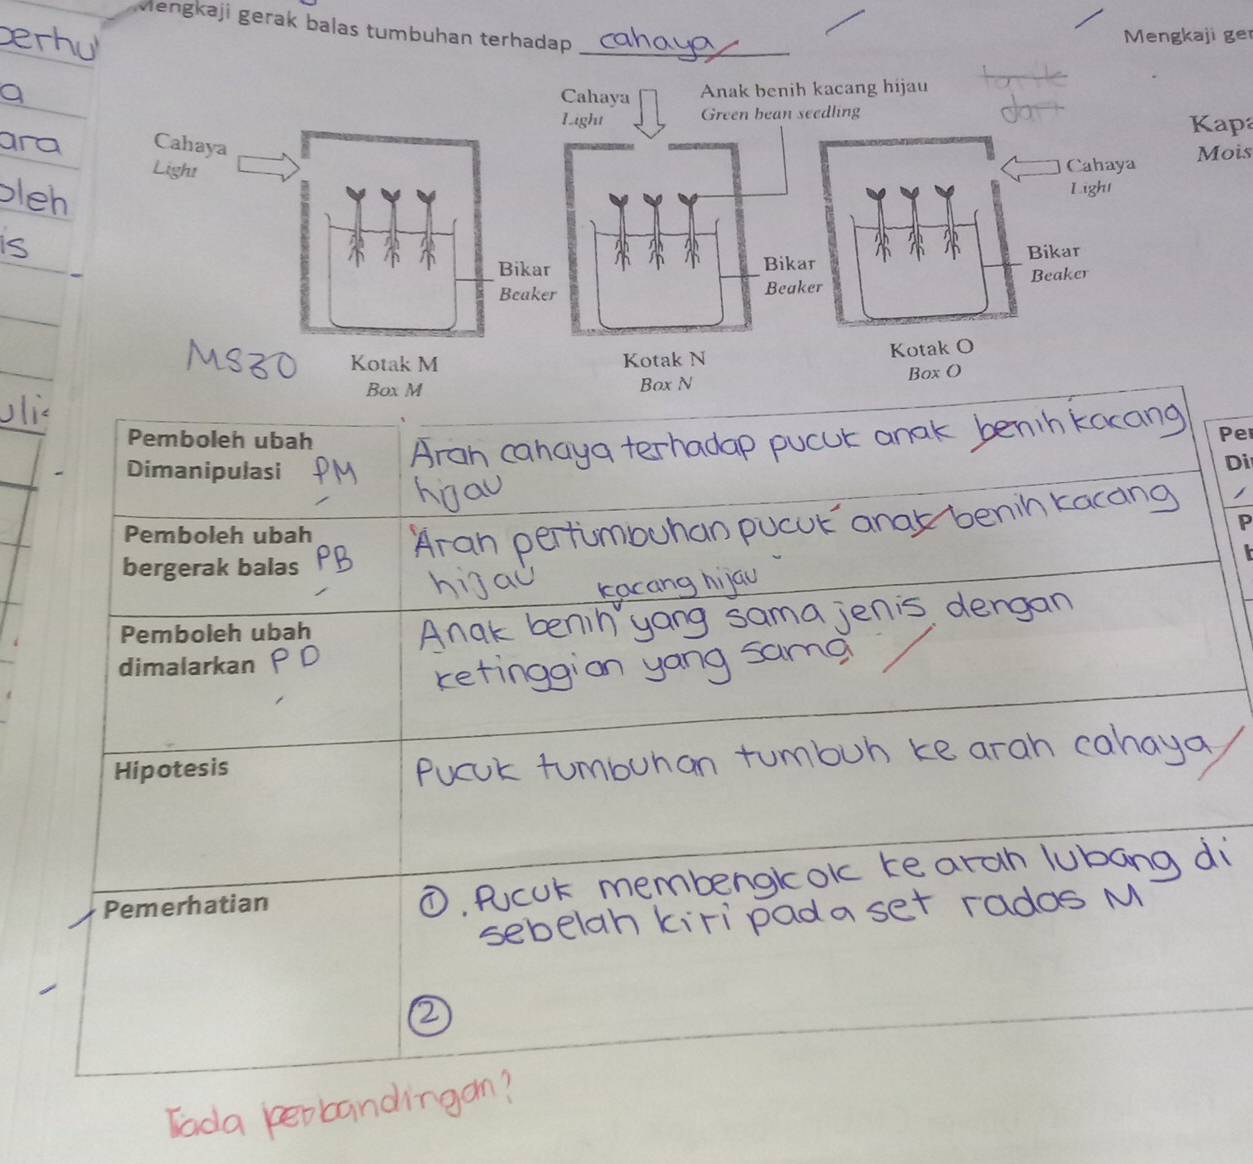 Mengkaji gerak balas tumbuhan terhadap cahaya
Mengkaji ger
a
ara
oleh
is
Cahaya
Light
Cahaya
Light
Anak benih kacang hijau
Green bean seedling
Cahaya
Light
Kapa
Mois
Bikar
Beaker
Bikar
Beaker
Bikar
Beaker
MS30
Kotak M
Box M
Kotak N
Box N
Kotak O
Box O
Pemboleh ubah
Dimanipulasi PM
Arah cahaya terhadap pucuk anak benih kacang
hijau
Pemboleh ubah
bergerak balas PB
Arah pertumbuhan pucuk anak benih kacang
hijau
kacang hijau
Pemboleh ubah
dimalarkan PD
Anak benih yang sama jenis dengan
ketinggian yang sama
Hipotesis
Pucuk tumbuhan tumbuh ke arah cahaya
Pemerhatian
①. Pucuk membengkok ke arah lubang di
sebelah kiri pada set radas M
②
Tiada perbandingan?
Per
Di
P